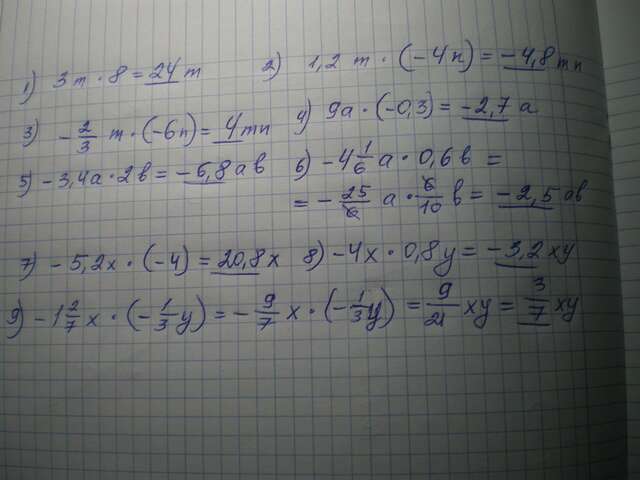 1) 3m · 8 = 24m 2) 1,2 m · (-4n) = -4,8mn
3) -2/3 m · (-6n) = 4mn 4) 9a · (-0,3) = -2,7 a
5) -3,4a · 2b = -6,8 ab 6) -4 1/6 a · 0,6 b =
= -25/6 a · 6/10 b = -2,5 ab
7) -5,2x · (-4) = 20,8x 8) -4x · 0,8y = -3,2 xy
9) -1 2/7 x · (-1/3 y) = -9/7 x · (-1/3 y) = 9/21 xy = 3/7 xy